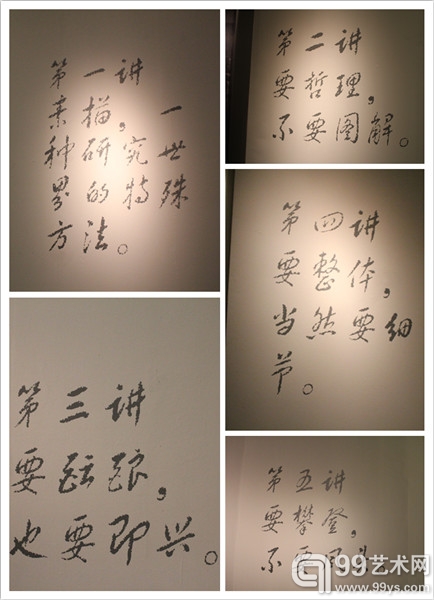 第一讲
素描，一
种研究世
界的特殊
方法。
第二讲
要哲理，
不要图解。
第三讲
要酝酿，
也要即兴。
第四讲
要整体，
当然要细
节。
第五讲
要攀登，
不要
99艺术网
www.99ys.com